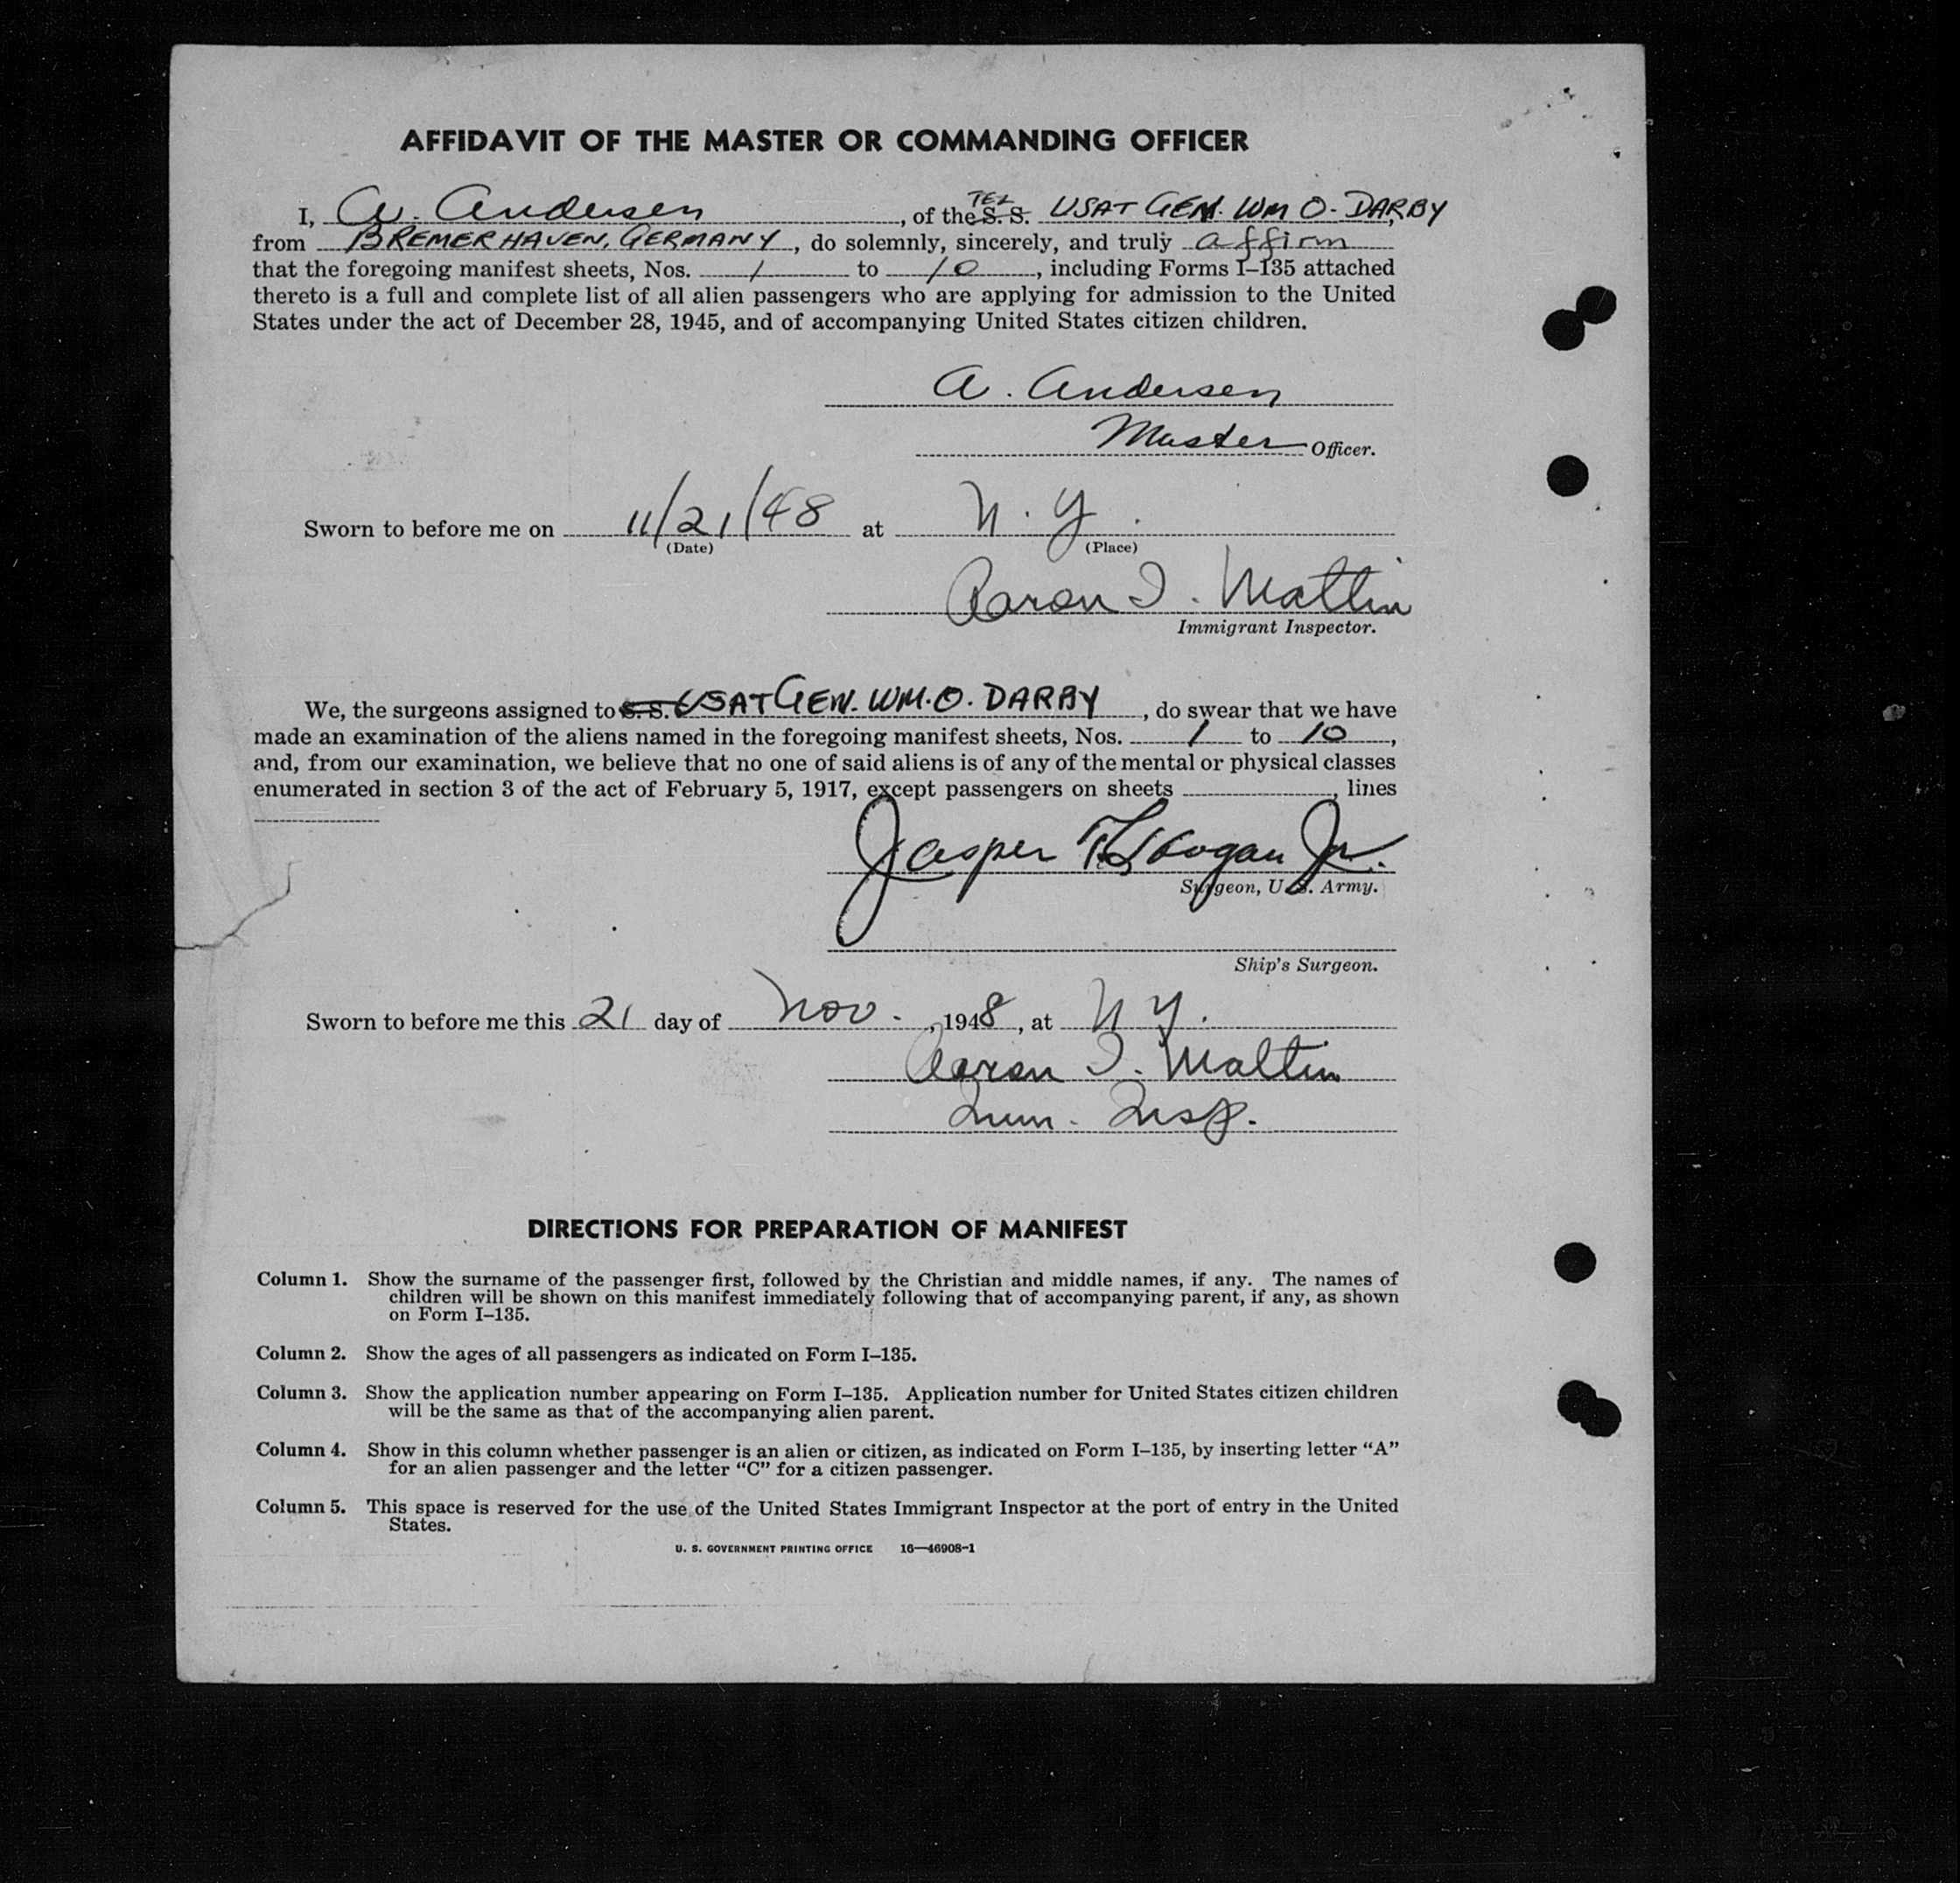 AFFIDAVIT OF THE MASTER OR COMMANDING OFFICER
I, A. Andersen, of the S. S. USAT GEN. WM O. DARBY
from BREMERHAVEN, GERMANY, do solemnly, sincerely, and truly affirm
that the foregoing manifest sheets, Nos. 1 to 10, including Forms I-135 attached
thereto is a full and complete list of all alien passengers who are applying for admission to the United
States under the act of December 28, 1945, and of accompanying United States citizen children.
A. Andersen
Master Officer.
Sworn to before me on 11/21/48 at N.Y.
(Date) (Place)
Aaron I. Maltin
Immigrant Inspector.
We, the surgeons assigned to S. S. USAT GEN. WM. O. DARBY, do swear that we have
made an examination of the aliens named in the foregoing manifest sheets, Nos. 1 to 10,
and, from our examination, we believe that no one of said aliens is of any of the mental or physical classes
enumerated in section 3 of the act of February 5, 1917, except passengers on sheets , lines
Jasper Jr.
Surgeon, U. S. Army.
Ship's Surgeon.
Sworn to before me this 21 day of Nov., 1948, at N Y.
Aaron I. Maltin
Imm. Insp.
DIRECTIONS FOR PREPARATION OF MANIFEST
Column 1. Show the surname of the passenger first, followed by the Christian and middle names, if any. The names of
children will be shown on this manifest immediately following that of accompanying parent, if any, as shown
on Form I-135.
Column 2. Show the ages of all passengers as indicated on Form I-135.
Column 3. Show the application number appearing on Form I-135. Application number for United States citizen children
will be the same as that of the accompanying alien parent.
Column 4. Show in this column whether passenger is an alien or citizen, as indicated on Form I-135, by inserting letter "A"
for an alien passenger and the letter "C" for a citizen passenger.
Column 5. This space is reserved for the use of the United States Immigrant Inspector at the port of entry in the United
States.
U. S. GOVERNMENT PRINTING OFFICE 16—46908-1